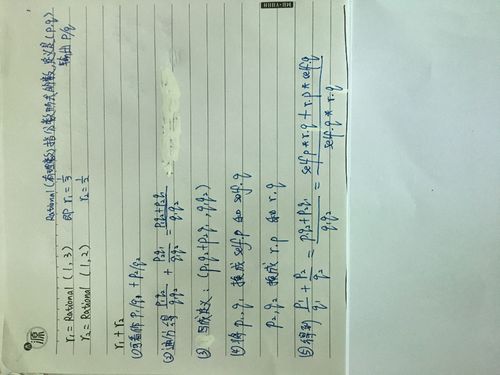 源
MO·YUHH
Rational(有理数)指分数形式的数,定义是(p,q)
输出 p/q
r₁ = Rational (1,3) 即 r₁ = 1/3
r₂ = Rational (1,2) r₂ = 1/2
r₁ + r₂
(1) 可看作 p₁/q₁ + p₂/q₂
(2) 通分得 p₁q₂/q₁q₂ + p₂q₁/q₁q₂ = p₁q₂+p₂q₁/q₁q₂
(3) 定义: (p₁q₂+p₂q₁, q₁q₂)
(4) 将 p₁, q₁ 换成 self.p 和 self.q
p₂, q₂ 换成 r.p 和 r.q
(5) 得到 p₁/q₁ + p₂/q₂ = p₁q₂+p₂q₁/q₁q₂ = self.p*r.q + r.p*self.q/self.q*r.q